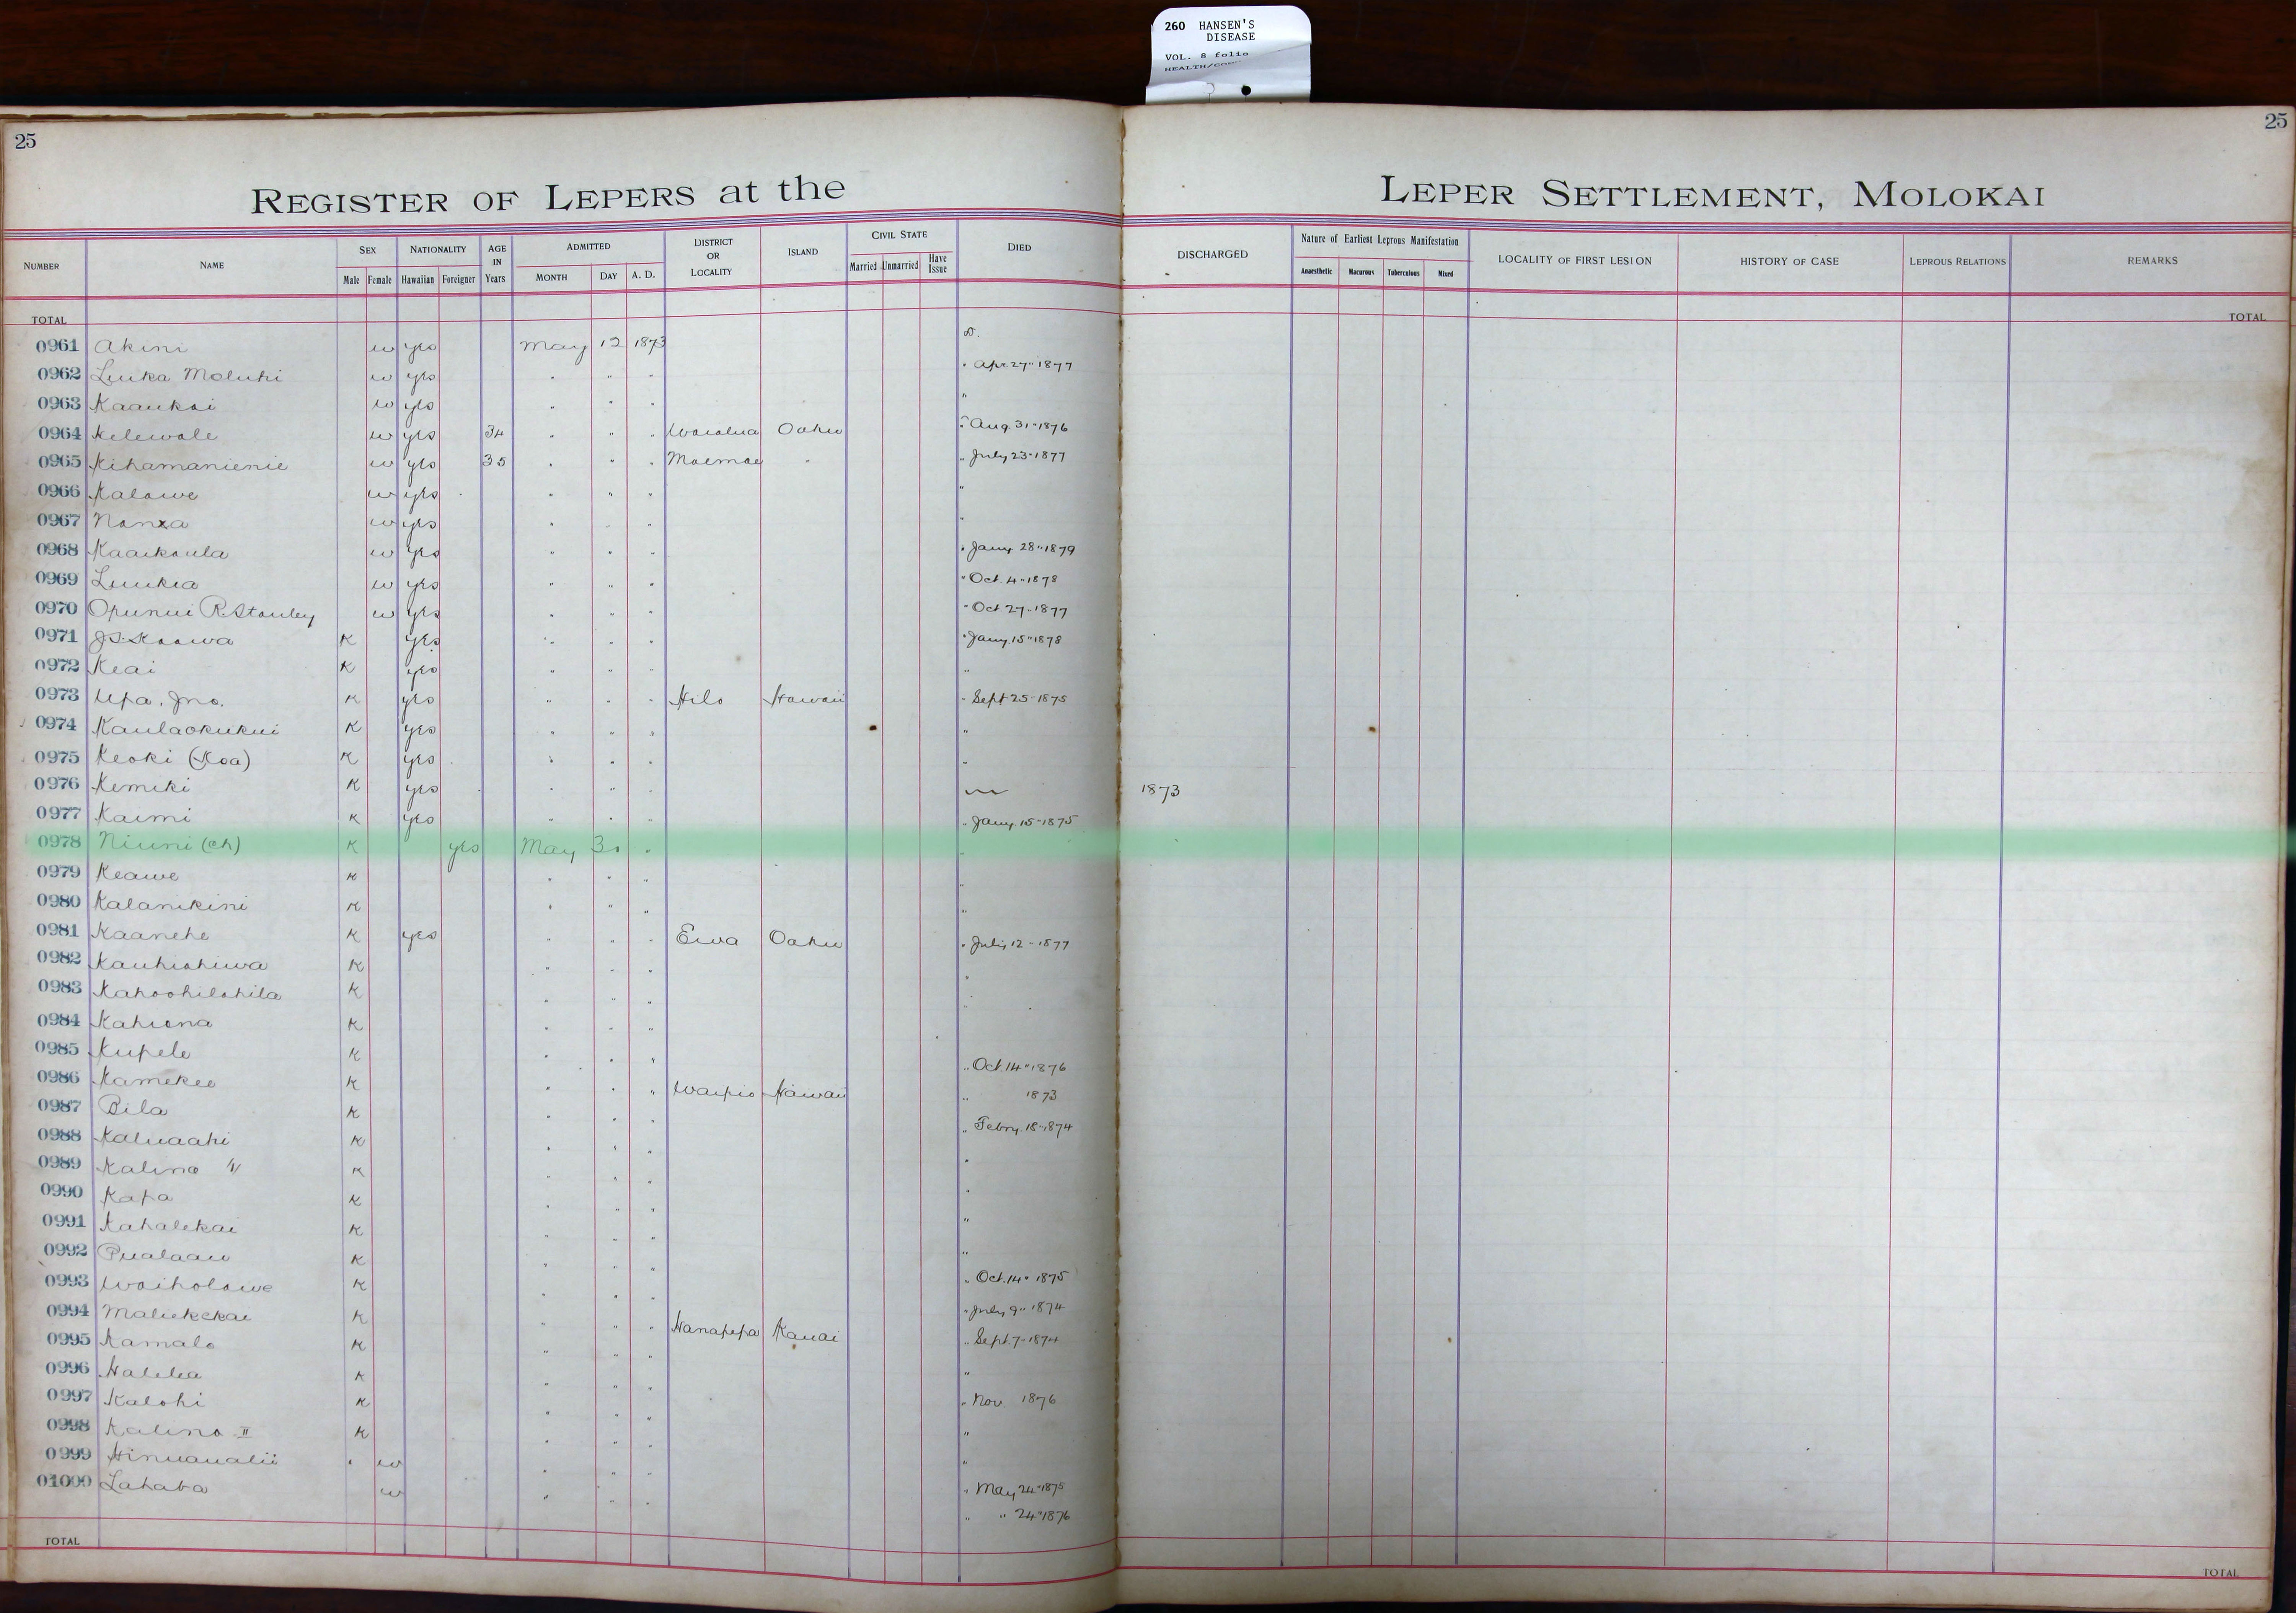 260 HANSEN'S
DISEASE
VOL. 8 folio
25
25
REGISTER OF LEPERS at the
LEPER SETTLEMENT, MOLOKAI
NUMBER NAME SEX Male Female NATIONALITY Hawaiian Foreigner AGE IN Years ADMITTED MONTH DAY A. D. DISTRICT OR LOCALITY ISLAND CIVIL STATE Married Unmarried Have Issue DIED DISCHARGED Nature of Earliest Leprous Manifestation Anaesthetic Macurous Tuberculous Mixed LOCALITY OF FIRST LESION HISTORY OF CASE LEPROUS RELATIONS REMARKS
TOTAL TOTAL
0961 Akini w yes May 12 1873 D.
0962 Luika Moluhi w yes " " " " Apr. 27" 1877
0963 Kaaukai w yes " " " "
0964 Kelewale w yes 34 " " " Waialua Oahu " Aug. 31" 1876
0965 Kihamanienie w yes 35 " " " Moemoe " " July 23" 1877
0966 Kalawe w yes " " " "
0967 w yes " " "
0968 Kaaikaula w yes " " " " Jany. 28" 1879
0969 Luukia w yes " " " " Oct. 4" 1878
0970 Opunui R. Stanley w yes " " " " Oct 27" 1877
0971 J. S. Kaawa K yes " " " " Jany. 15" 1878
0972 Keai K yes " " " "
0973 Upa. Jno. K yes " " " Hilo Hawaii " Sept 25" 1875
0974 Kaulaokukui K yes " " " "
0975 Keoki (Koa) K yes " " " "
0976 Kemiki K yes " " " 1873
0977 Kaimi K yes " " " " Jany. 15" 1875
0978 Niuni (ch) K yes May 30 " "
0979 Keawe K " " " "
0980 Kalanikini K " " " "
0981 Kaanehe K yes " " " Ewa Oahu " July 12" 1877
0982 Kauhiahiwa K " " " "
0983 Kahoohilahila K " " " "
0984 Kahiona K " " "
0985 Kupele K " " " " Oct. 14" 1876
0986 Kamekeo K " " " Waipio Hawaii " 1873
0987 Bila K " " " " Febry. 18" 1874
0988 Kaluaahi K " " " "
0989 Kalino K " " " "
0990 Kapa K " " " "
0991 Kahalekai K " " " "
0992 Pualaau K " " " " Oct. 14" 1875
0993 Waiholowe K " " " " July 9" 1874
0994 Maliekekai K " " " Hanapepa Kauai " Sept. 7" 1874
0995 Kamalo K " " " "
0996 Halelea K " " " " Nov. 1876
0997 Kalohi K " " " "
0998 Kalino II K " " " "
0999 Hinuaualii w " " " " May 24" 1875
01000 Lahaba w " " " " " 24" 1876
TOTAL TOTAL